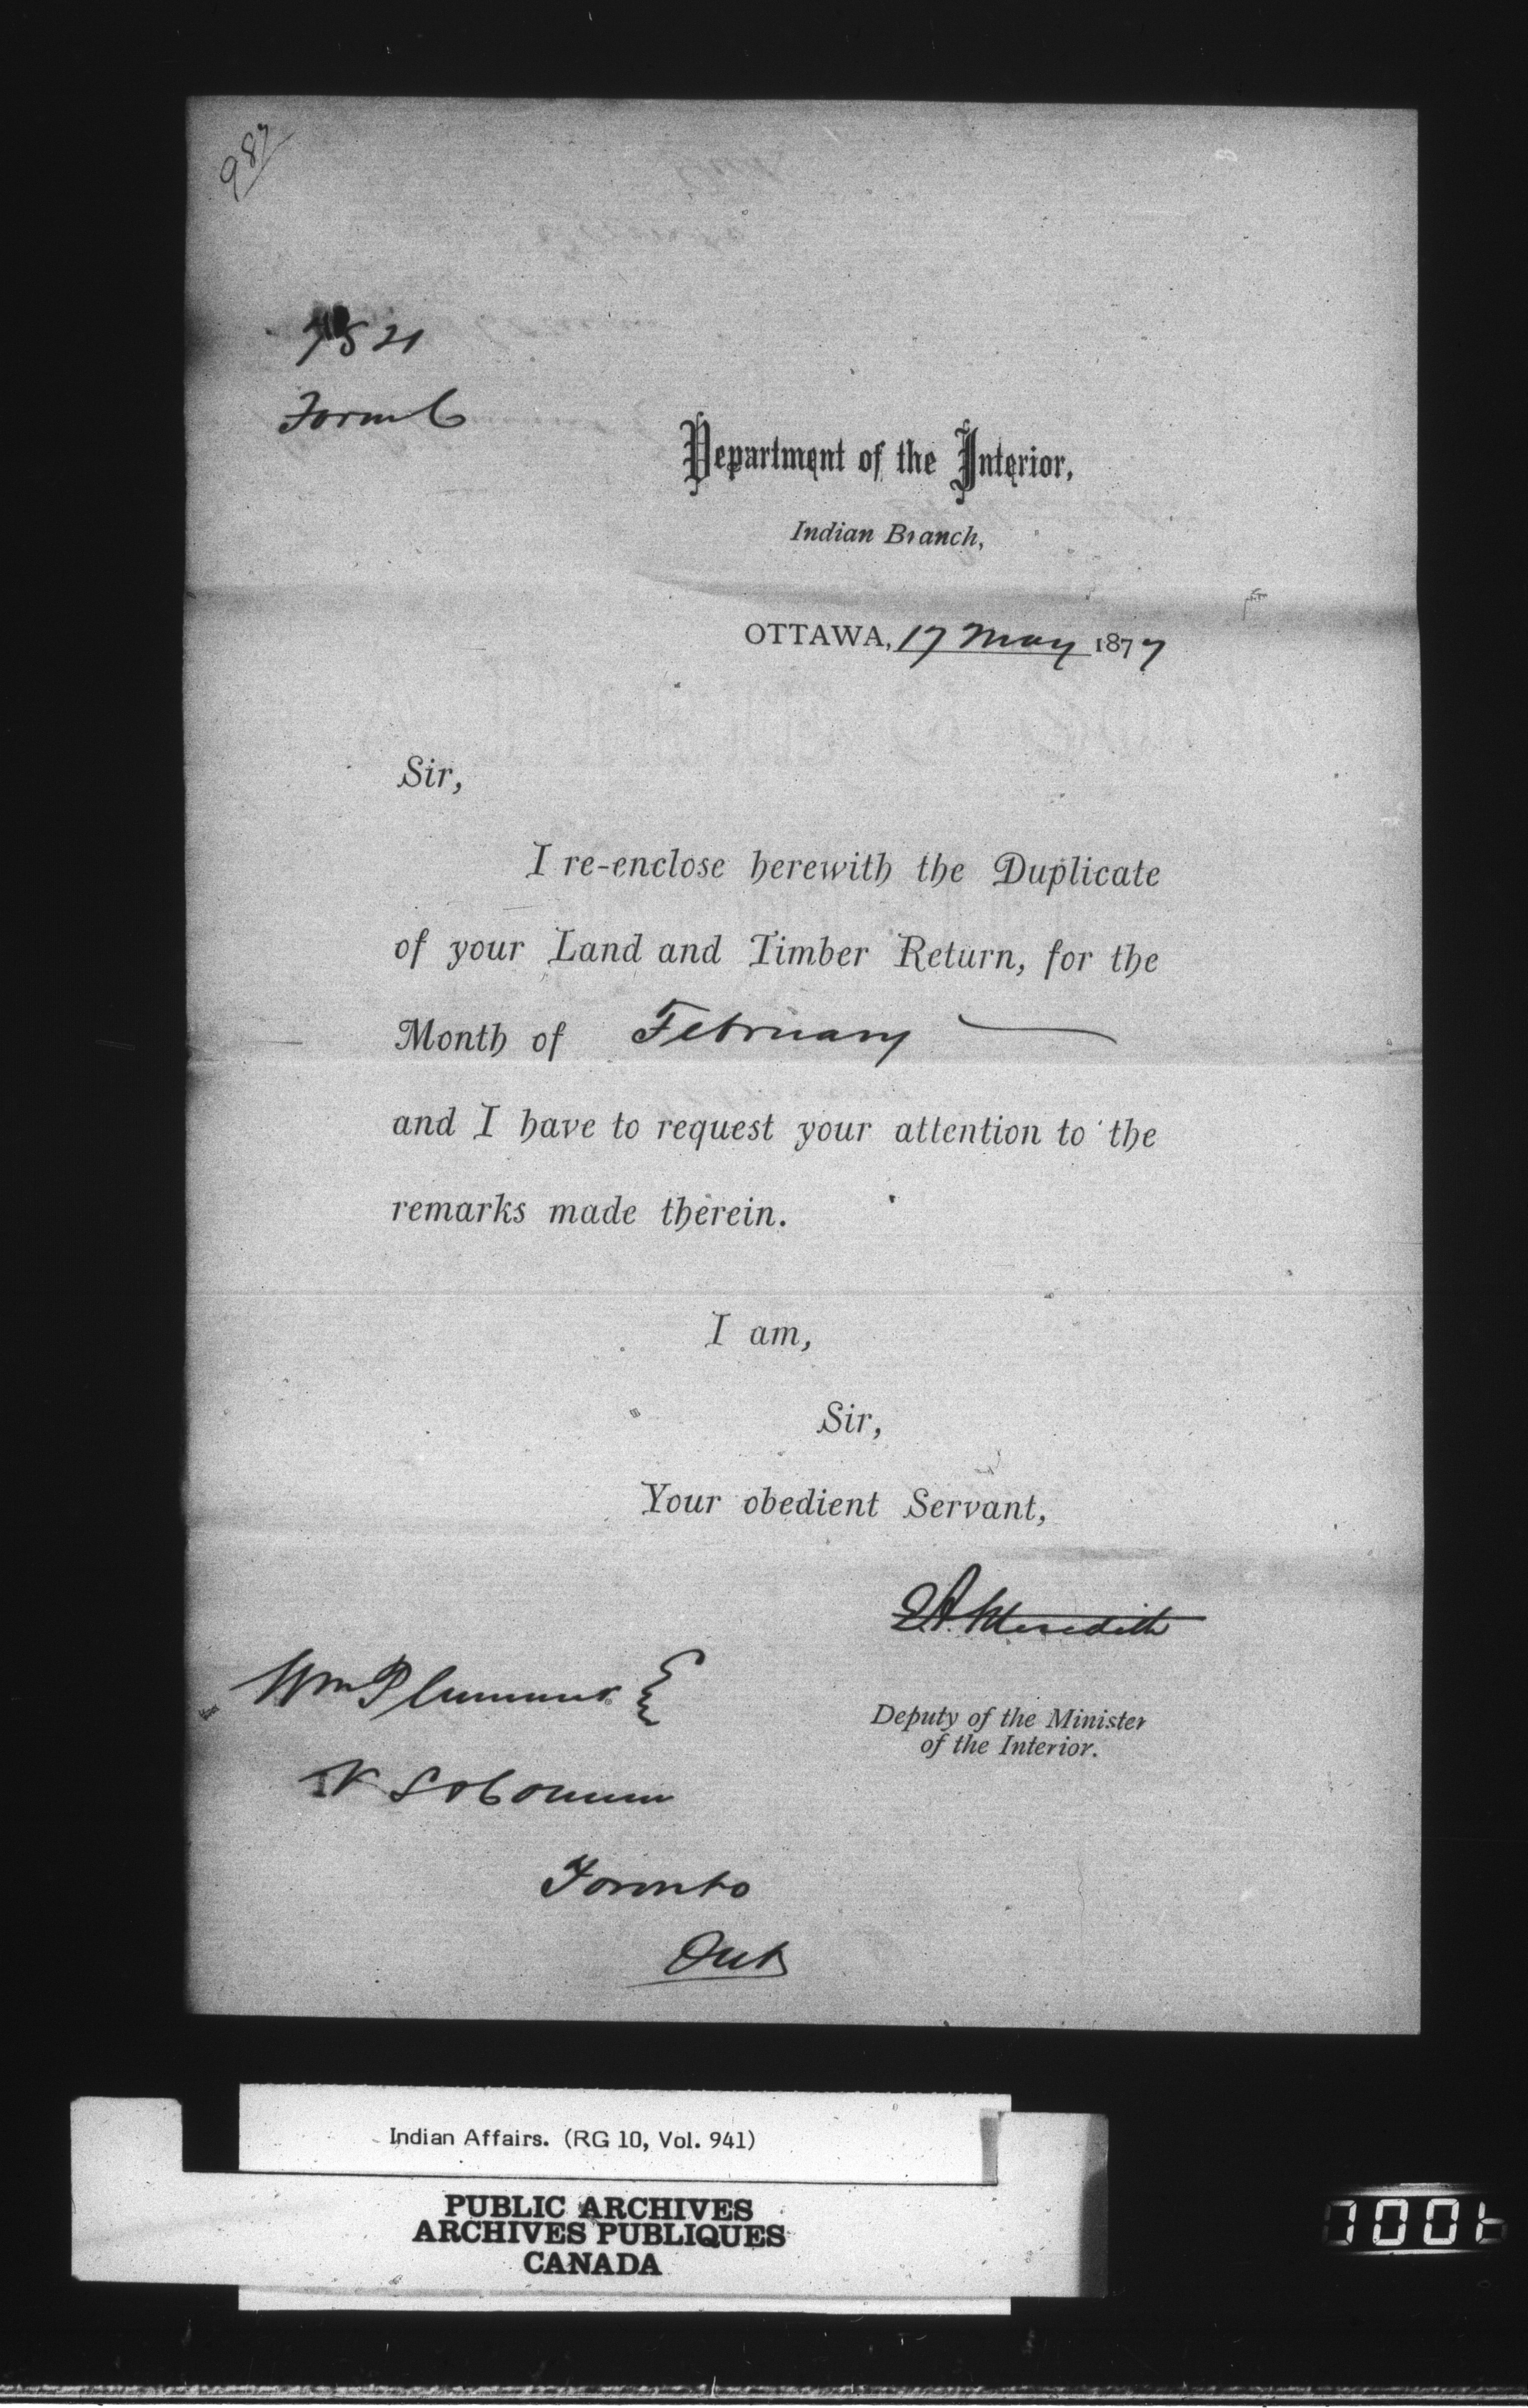 987
7821
Form C
Department of the Interior,
Indian Branch,
OTTAWA, 17 May 1877
Sir,
I re-enclose herewith the Duplicate
of your Land and Timber Return, for the
Month of February
and I have to request your attention to the
remarks made therein.
I am,
Sir,
Your obedient Servant,
E A Meredith
Deputy of the Minister
of the Interior.
Wm Plummer
Toronto
Ont
Indian Affairs. (RG 10, Vol. 941)
PUBLIC ARCHIVES
ARCHIVES PUBLIQUES
CANADA